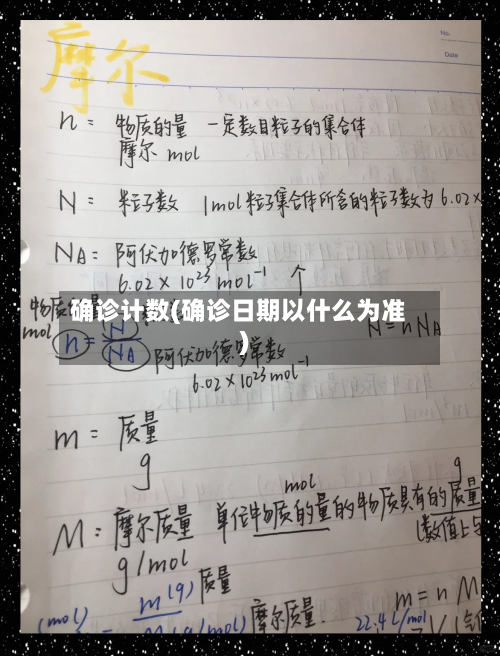 No.
Date
摩尔
n = 物质的量 一定数目粒子的集合体
摩尔 mol
N = 粒子数 1mol粒子集合体所含的粒子数为6.02×
NA = 阿伏加德罗常数
6.02×10²³ mol⁻¹ 个
物质
mol
确诊计数(确诊日期以什么为准
)
n = N/NA
N = nNA
阿伏加德罗常数
6.02×10²³mol⁻¹
m = 质量
g
mol
g
M: 摩尔质量 单位物质的量的物质具有的质量
g/mol
(数值上与
m(g) 质量
(mol)
m = n M
M(g/mol) 摩尔质量.
22.4L/mol